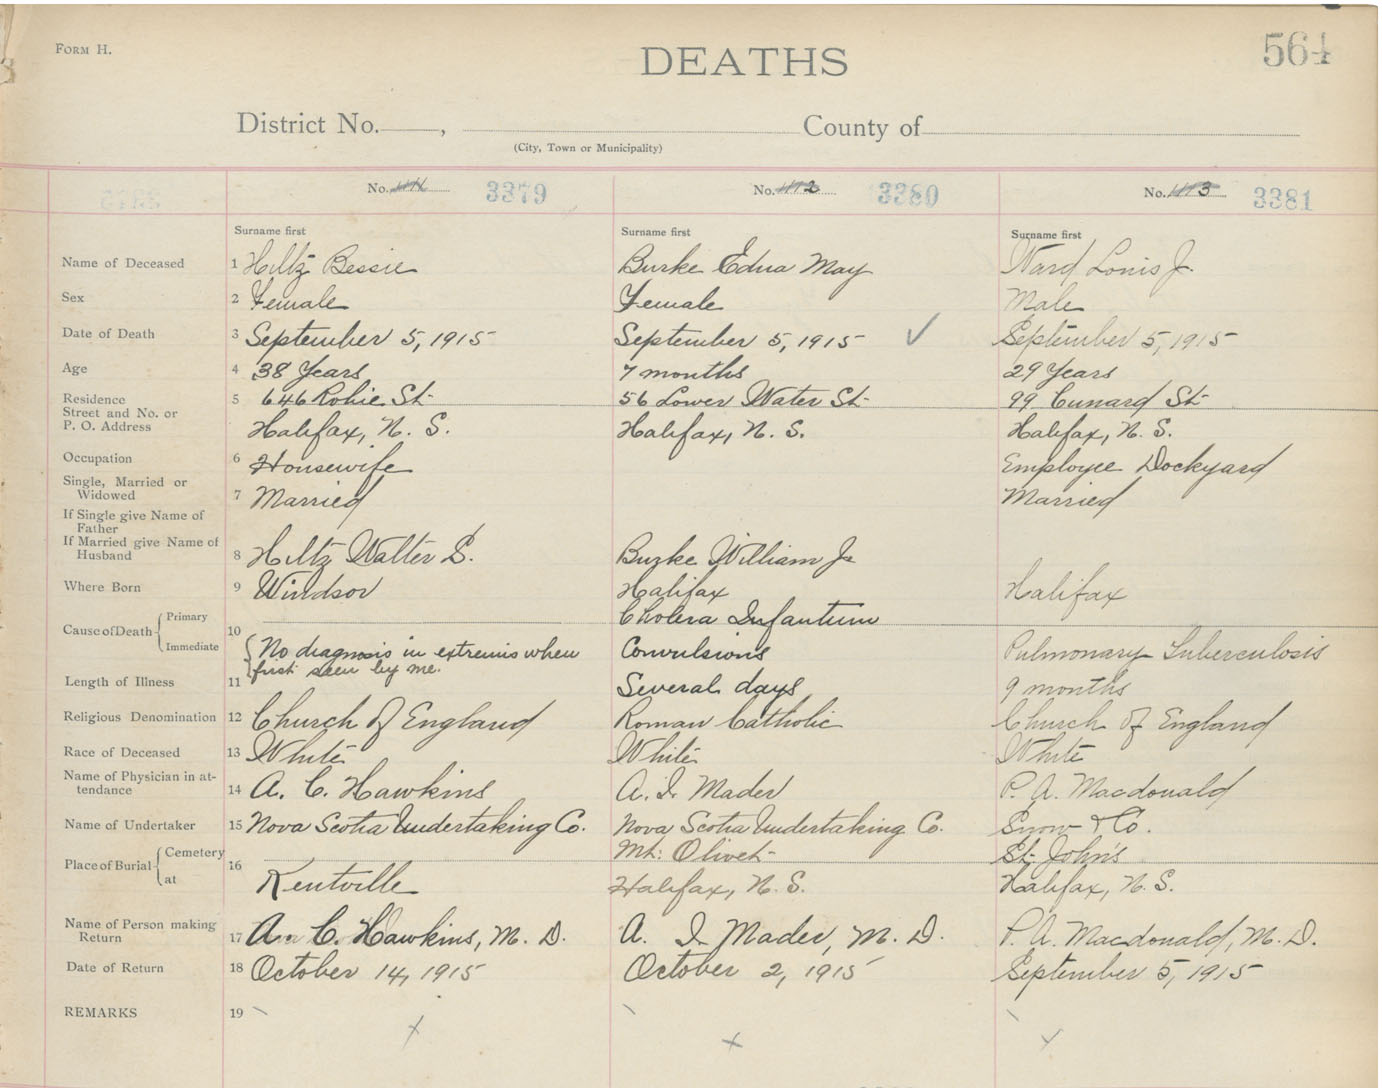 FORM H.
DEATHS
564
District No. , County of
(City, Town or Municipality)
No. 3379 No. 2 3380 No. 3 3381
Surname first Surname first Surname first
Name of Deceased 1 Hiltz Bessie Burke Edna May Ward Louis J.
Sex 2 Female Female Male
Date of Death 3 September 5, 1915 September 5, 1915 ✓ September 5, 1915
Age 4 38 Years 7 months 29 Years
Residence 5 646 Robie St. 56 Lower Water St. 99 Cunard St.
Street and No. or
P. O. Address Halifax, N. S. Halifax, N. S. Halifax, N. S.
Occupation 6 Housewife Employee Dockyard
Single, Married or
Widowed 7 Married Married
If Single give Name of
Father
If Married give Name of
Husband 8 Hiltz Walter S. Burke William Jr
Where Born 9 Windsor Halifax Halifax
Cause of Death { Primary 10 Cholera Infantum
Immediate { No diagnosis in extremis when Convulsions Pulmonary Tuberculosis
first seen by me.
Length of Illness 11 Several days 9 months
Religious Denomination 12 Church of England Roman Catholic Church of England
Race of Deceased 13 White White White
Name of Physician in at-
tendance 14 A. C. Hawkins A. I. Mader P. A. Macdonald
Name of Undertaker 15 Nova Scotia Undertaking Co. Nova Scotia Undertaking Co. Snow & Co.
Place of Burial { Cemetery 16 Mt. Olivet St. John's
at Kentville Halifax, N. S. Halifax, N. S.
Name of Person making
Return 17 A. C. Hawkins, M. D. A. I. Mader, M. D. P. A. Macdonald, M. D.
Date of Return 18 October 14, 1915 October 2, 1915 September 5, 1915
REMARKS 19